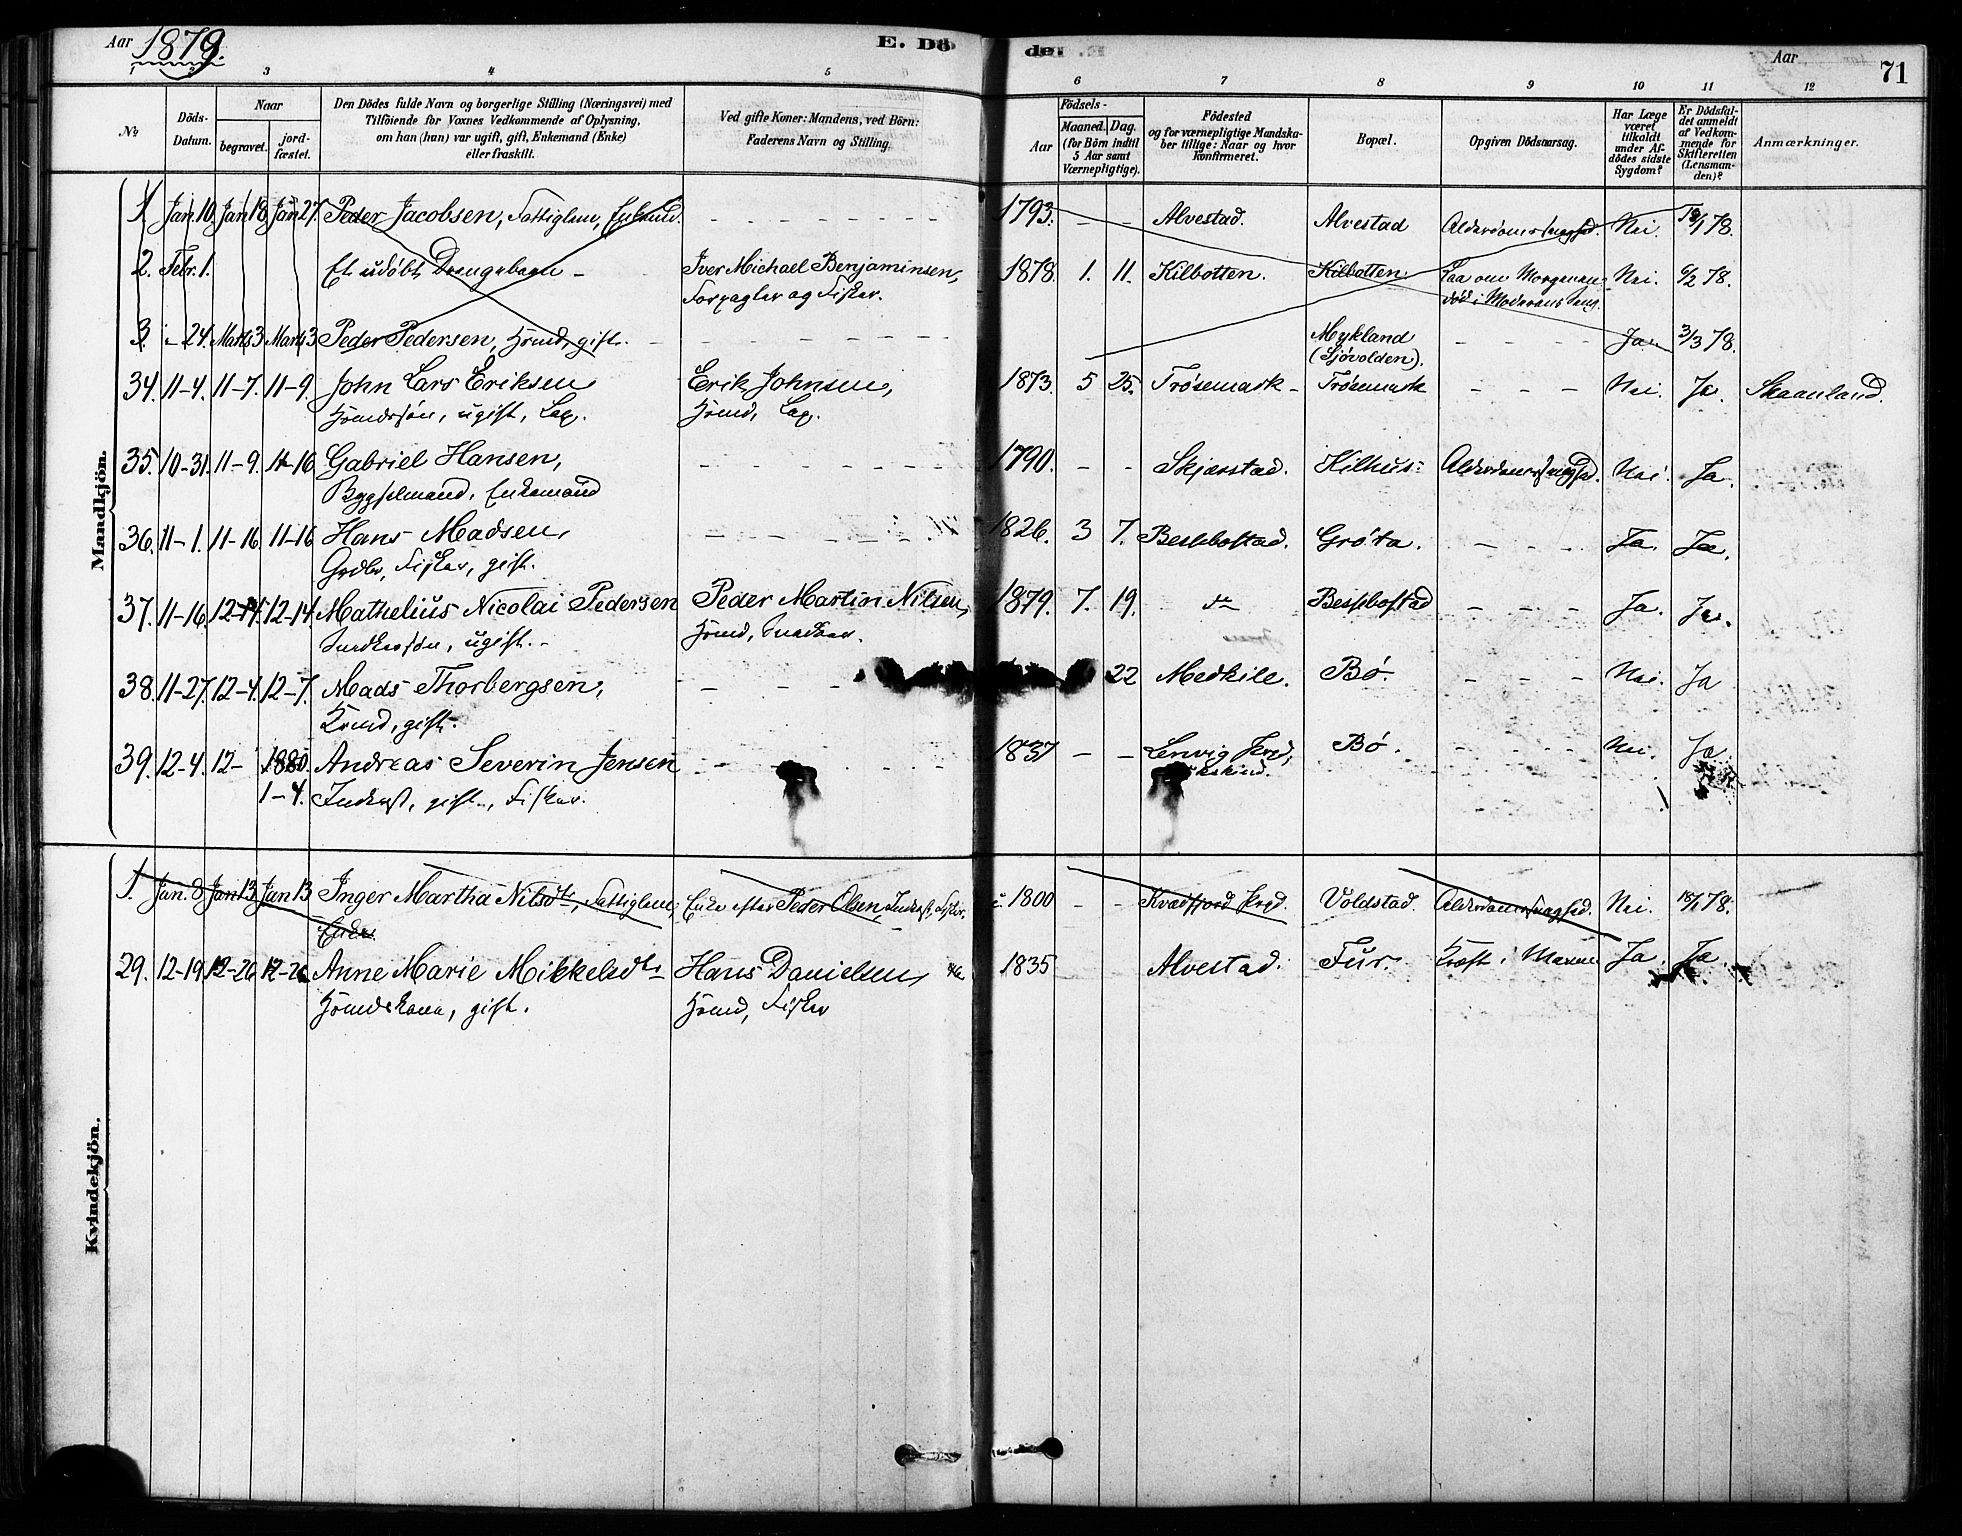 Aar 1879. E. Dö
1 2 3 4 5
№ Döds-Datum. Naar begravet. jord-fæstet. Den Dödes fulde Navn og borgerlige Stilling (Næringsvei) med Tilföiende for Voxnes Vedkommende af Oplysning, om han (hun) var ugift, gift, Enkemand (Enke) eller fraskilt. Ved gifte Koner: Mandens, ved Börn: Faderens Navn og Stilling.
de. Aar 71
6 7 8 9 10 11 12
Födsels- Aar Maaned. Dag. (for Börn indtil 5 Aar samt Værnepligtige). Födested og for værnepligtige Mandskaber tillige: Naar og hvor konfirmeret. Bopæl. Opgiven Dödsaarsag. Har Læge været tilkaldt under Afdödes sidste Sygdom? Er Dödsfaldet anmeldt af Vedkommende for Skifteretten (Lensmanden)? Anmærkninger.
Mandkjön.
1. Jan. 10. Jan. 18. Jan 27. Peder Jacobsen, Fattiglem, 1793. Alvestad. Alvestad Alderdomssvaghed. Nei. 78.
2. Febr. 1. Et udöbt Drengebarn Iver Michael Benjaminsen, 1878. 1. 11. Kilbotten. Kilbotten. Laa om Morgenen Nei. 6/2 78.
Forpagter og Fisker. död i Moderens Seng.
3. 24. Marts 3 Marts 3 Peder Pedersen, Hmd, gift. Mykland Ja. 3/3 78.
(Sjövolden).
34. 11-4. 11-7. 11-9. John Lars Eriksen Erik Johnsen, 1873. 5 25. Trösemark Trösemark Nei. Ja. Skaanland.
Hmdssön, ugift, Lap. Hmd, Lap.
35. 10-31. 11-9. 11-16 Gabriel Hansen, 1790. Skjærstad. Kilhus. Alderdomssvaghed. Nei. Ja.
Bygselmand, Enkemand
36. 11-1. 11-16. 11-16 Hans Madsen, 1826. 3 7. Bessebostad. Gröta. Ja. Ja.
Fisker, gift.
37. 11-16. 12-14. 12-14. Mathelius Nicolai Pedersen Peder Martin Nilsen, 1879. 7. 19. do Bessebostad Ja. Ja.
ugift. Hmd,
38. 11-27. 12-4. 12-7. Mads Thorbergsen, 22 Medkile. Bö. Nei. Ja
gift.
39. 12-4. 12- 1880. Andreas Severin Jensen 1837 Lenvig Præd, Bö. Nei. Ja
1-4. Inderst, gift, Fisker.
Kvindekjön.
1. Jan. 8 Jan 13 Jan 13 Inger Martha Nilsdtr, Fattiglem, Enke efter Peder Olsen, Inderst, Fisker. 1800 Kvædfjord Præd. Voldstad. Alderdomssvaghed. Nei. 18/1 78.
Enke.
29. 12-19. 12-26. 12-26 Anne Marie Mikkelsdtr Hans Danielsen, 1835 Alvestad. Fur. Kræft i Maven Ja. Ja.
Hmdskone, gift. Hmd, Fisker